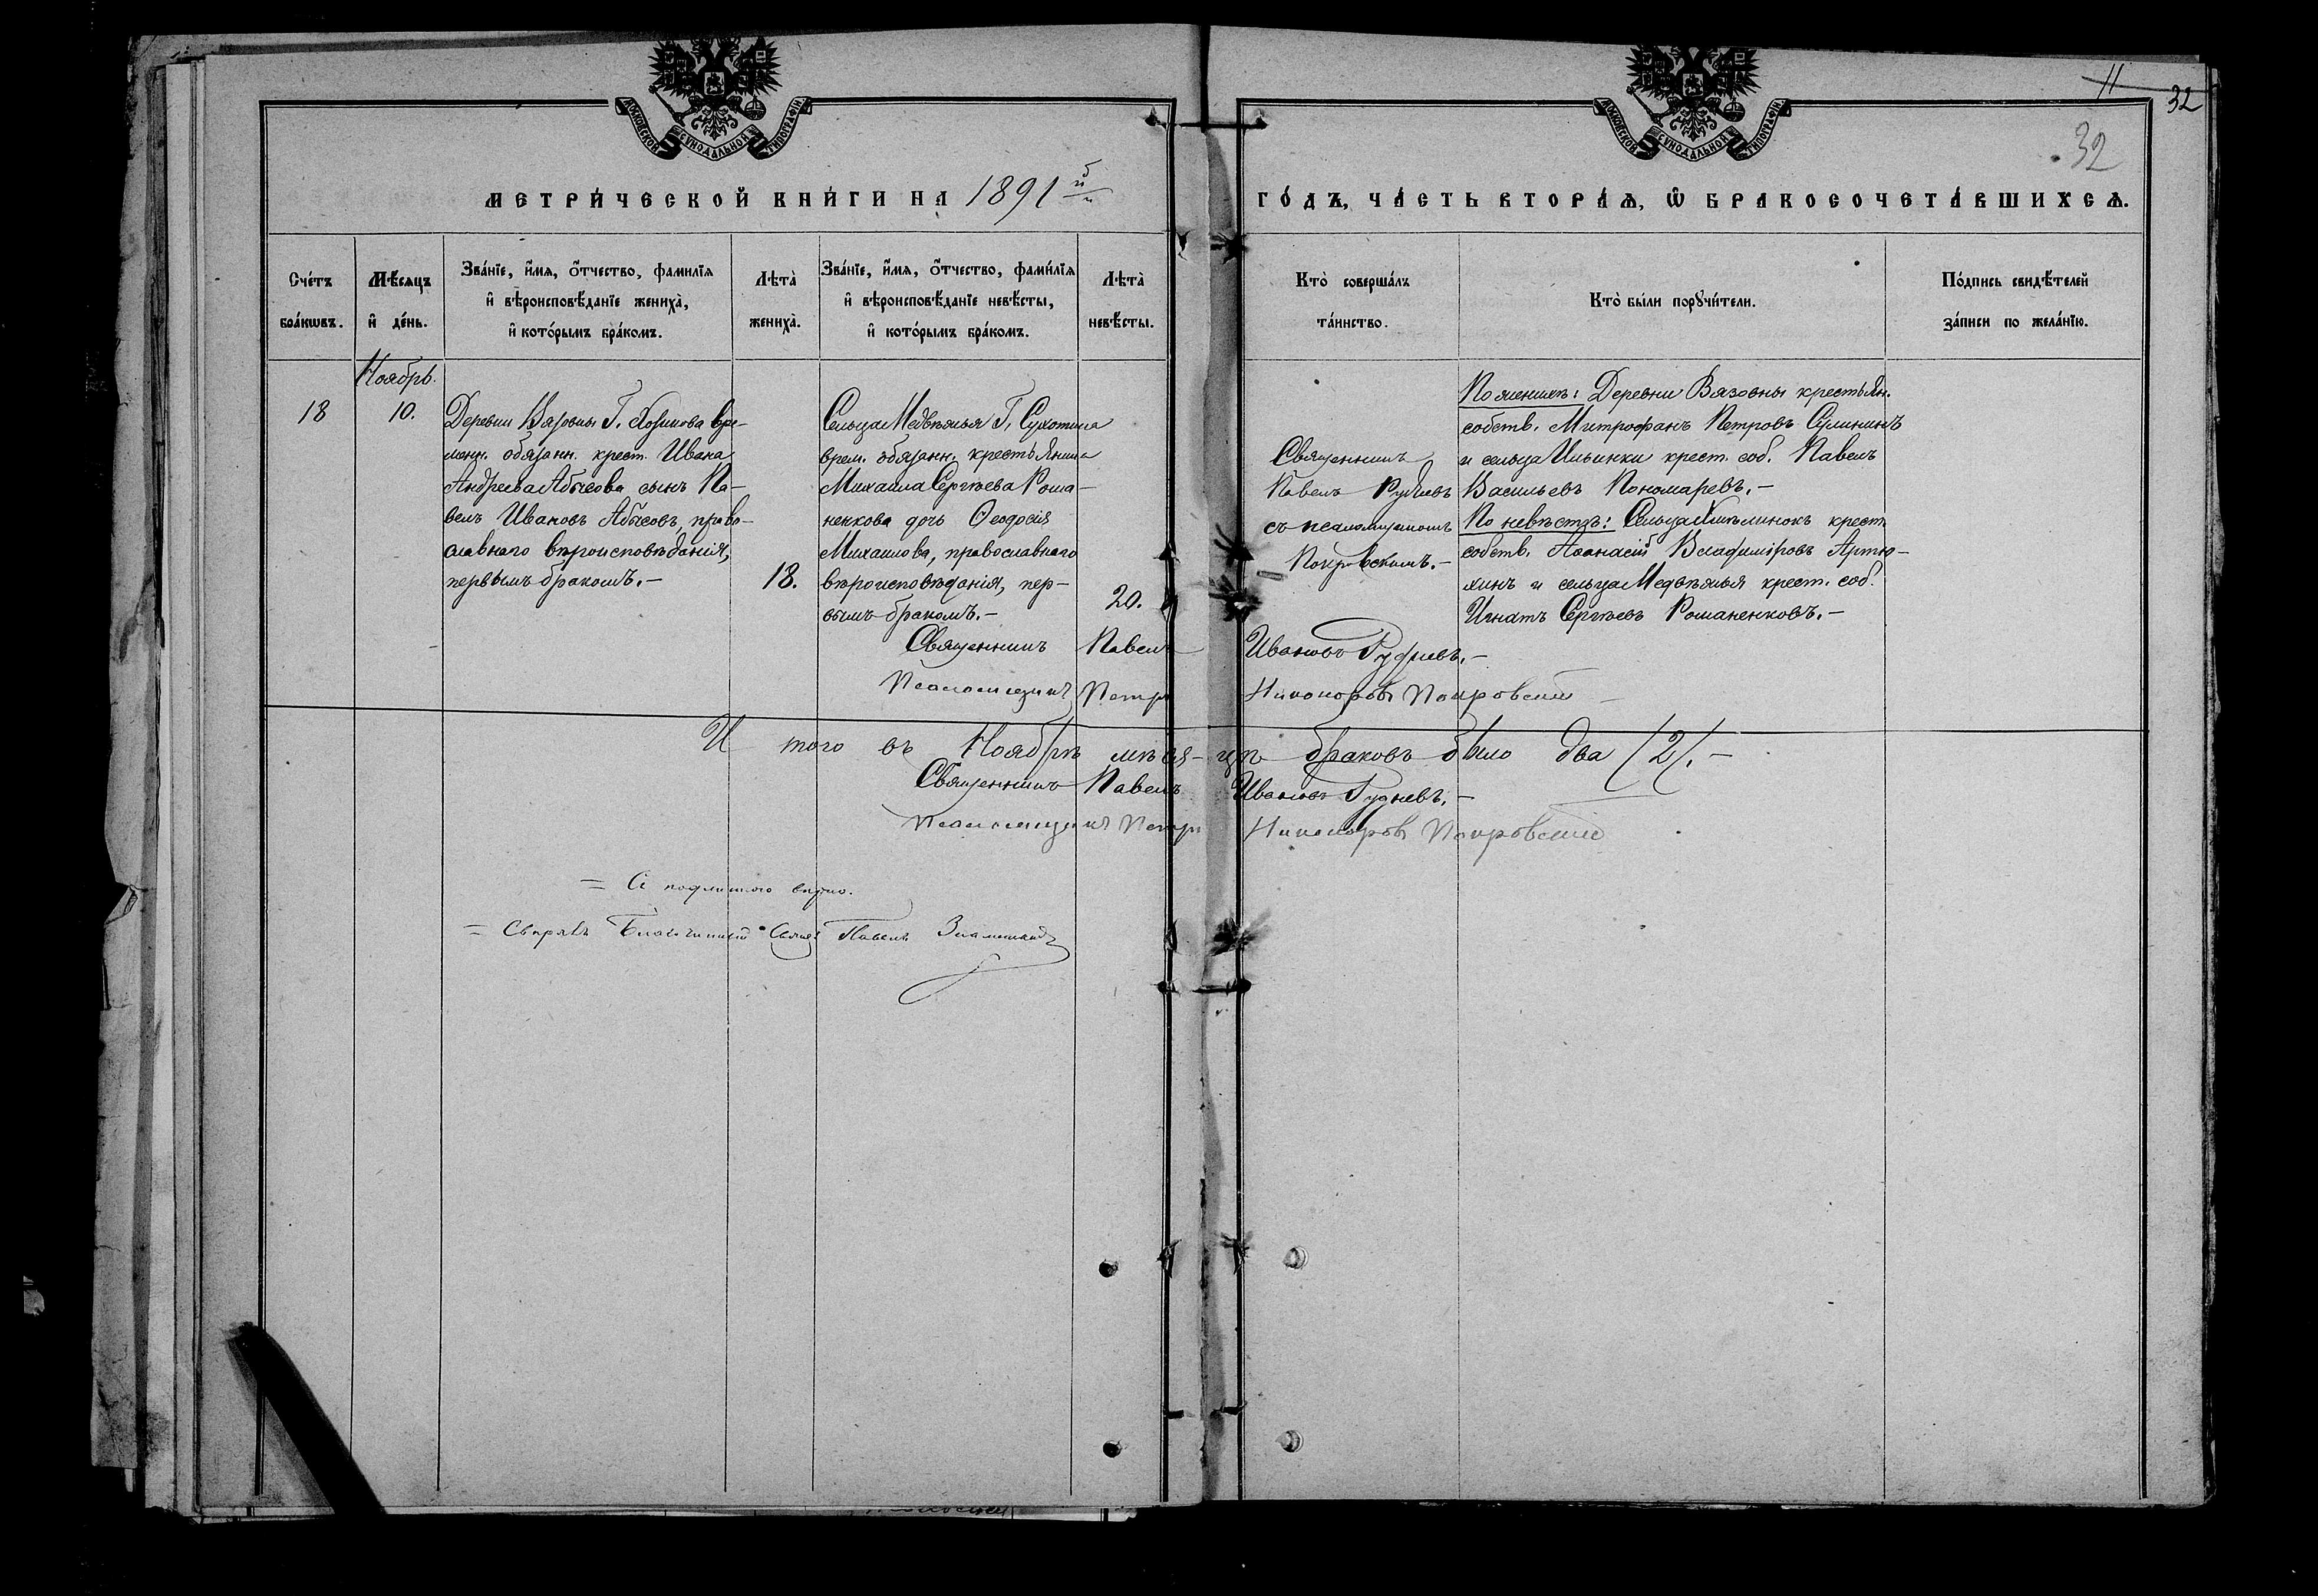 МОСКОВСКОЙ СѴНОДАЛЬНОЙ ТИПОГРАФІИ.
МОСКОВСКОЙ СѴНОДАЛЬНОЙ ТИПОГРАФІИ.
11
32
32
МЕТРИ́ЧЕСКОЙ КНИ́ГИ НА 1891й
ГО́ДЪ, ЧА́СТЬ ВТОРА́Ѧ, Ѡ҆ БРАКОСОЧЕТА́ВШИХСѦ.
Сче́тъ бра́кѡвъ.
Мѣ́сяцъ и҆ де́нь.
Зва́нїе, и҆́мѧ, ѻ҆́тчество, фами́лїѧ
и҆ вѣроисповѣ́данїе жениха̀,
и҆ кото́рымъ бра́комъ.
Лѣта̀ жениха̀.
Зва́нїе, и҆́мѧ, ѻ҆́тчество, фами́лїѧ
и҆ вѣроисповѣ́данїе невѣ́сты,
и҆ кото́рымъ бра́комъ.
Лѣта̀ невѣ́сты.
Кто̀ соверша́лъ
та́инство.
Кто̀ бы́ли порꙋчи́тели.
По́дпись свидѣ́телей
за́писи по жела́нїю.
Ноябрь.
18
10.
Деревни Вязовны Г. вре-
менн. обязанн. крест. Ивана
Андреева Абысова сынъ Па-
велъ Ивановъ Абысовъ, право-
славнаго вѣроисповѣданія,
первымъ бракомъ.-
18.
Сельца Медвѣжья Г. Сухотина
врем. обязанн. крестьянина
Михаила Сергѣева Рома-
ненкова дочь Ѳеодосія
Михаилова, православнаго
вѣроисповѣданія, пер-
вымъ бракомъ.-
20.
Священникъ
Павелъ Рудневъ
съ псаломщикомъ
Покровскимъ.-
По женихѣ: Деревни Вязовны крестьян.
собств. Митрофанъ Петровъ Сулининъ
и сельца Ильинки крест. соб. Павелъ
Васильевъ Пономаревъ.-
По невѣстѣ: Сельца Хмѣлинокъ крест.
собств. Аѳанасій Владиміровъ Артю-
хинъ и сельца Медвѣжья крест. соб.
Игнатъ Сергѣевъ Романенковъ.-
Священникъ Павелъ Ивановъ Рудневъ.-
Псаломщикъ Петръ Никоноровъ Покровскій
И того въ Ноябрѣ мѣся-цѣ браковъ было два (2).-
Священникъ Павелъ Ивановъ Рудневъ.-
Псаломщикъ Петръ Никоноровъ Покровскій
= Съ подлиннымъ вѣрно.
= Свѣрялъ Благочинный Свящ. Павелъ Знаменскій